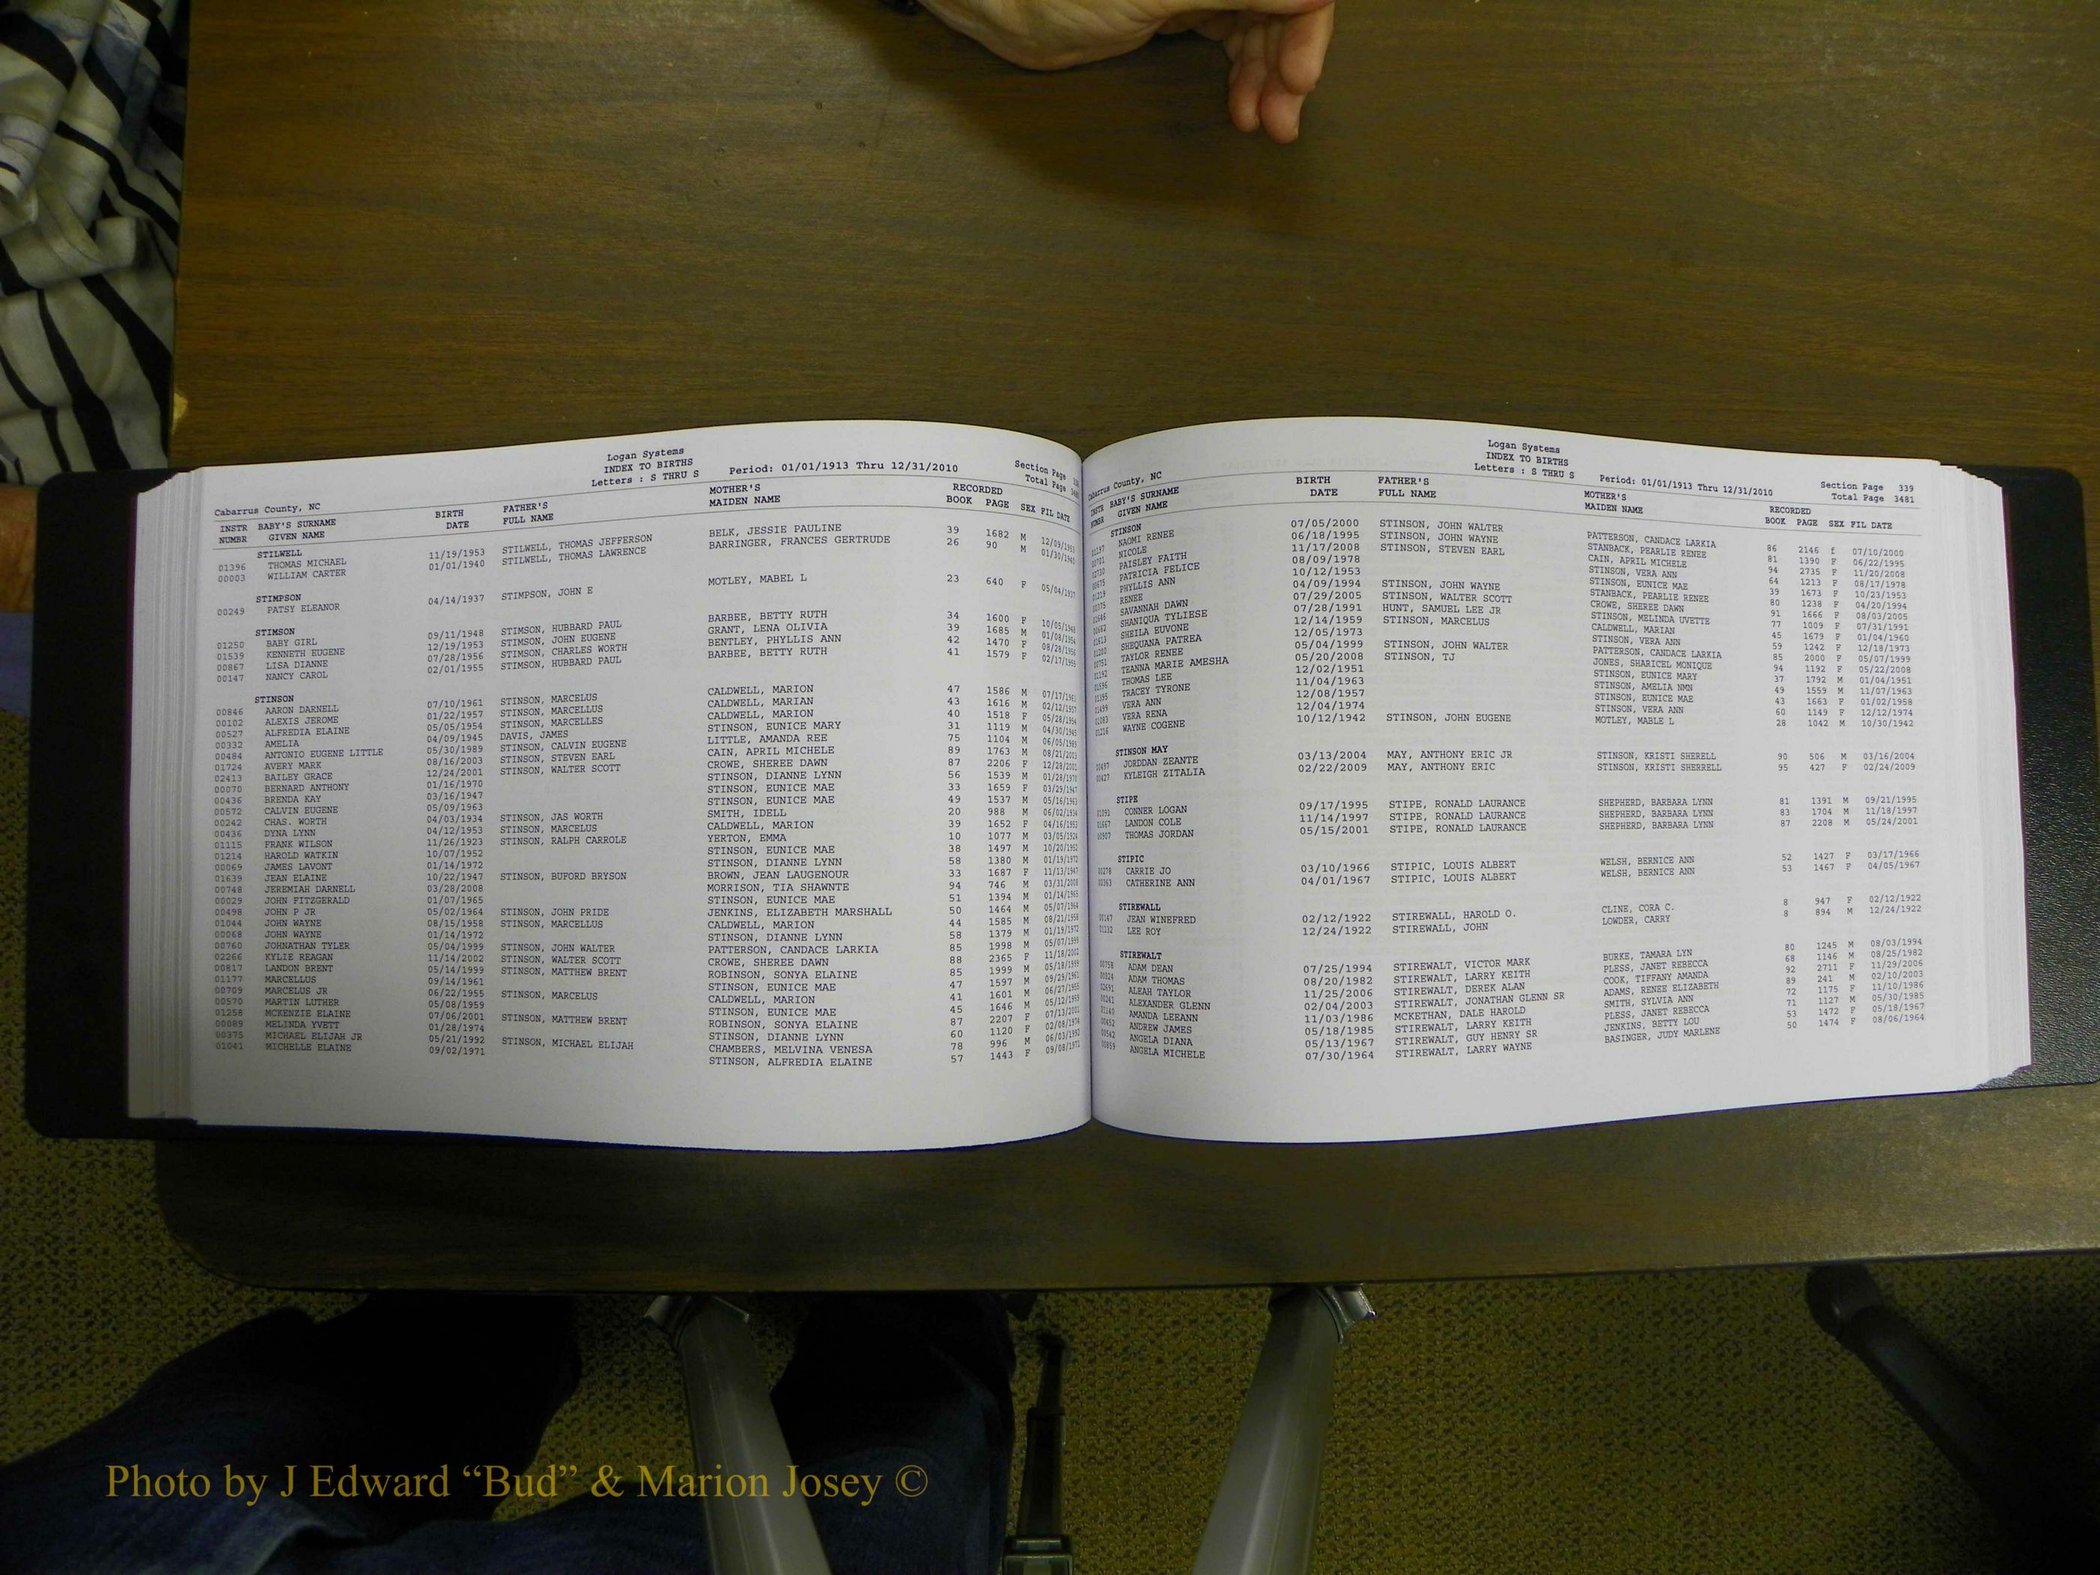 Logan Systems
INDEX TO BIRTHS
Letters : S THRU S
Period: 01/01/1913 Thru 12/31/2010
Section Page
Total Page
Cabarrus County, NC
INSTR BABY'S SURNAME BIRTH FATHER'S MOTHER'S RECORDED
NUMBR GIVEN NAME DATE FULL NAME MAIDEN NAME BOOK PAGE SEX FIL DATE
STILWELL
01396 THOMAS MICHAEL 11/19/1953 STILWELL, THOMAS JEFFERSON BELK, JESSIE PAULINE 39 1682 M 12/09/1953
00003 WILLIAM CARTER 01/01/1940 STILWELL, THOMAS LAWRENCE BARRINGER, FRANCES GERTRUDE 26 90 M 01/30/1940
STIMPSON
00249 PATSY ELEANOR 04/14/1937 STIMPSON, JOHN E MOTLEY, MABEL L 23 640 F 05/04/1937
STIMSON
01250 BABY GIRL 09/11/1948 STIMSON, HUBBARD PAUL BARBEE, BETTY RUTH 34 1600 F 10/05/1948
01539 KENNETH EUGENE 12/19/1953 STIMSON, JOHN EUGENE GRANT, LENA OLIVIA 39 1685 M 01/08/1954
00867 LISA DIANNE 07/28/1956 STIMSON, CHARLES WORTH BENTLEY, PHYLLIS ANN 42 1470 F 08/28/1956
00147 NANCY CAROL 02/01/1955 STIMSON, HUBBARD PAUL BARBEE, BETTY RUTH 41 1579 F 02/17/1955
STINSON
00846 AARON DARNELL 07/10/1961 STINSON, MARCELUS CALDWELL, MARION 47 1586 M 07/17/1961
00102 ALEXIS JEROME 01/22/1957 STINSON, MARCELLUS CALDWELL, MARIAN 43 1616 M 02/12/1957
00527 ALFREDIA ELAINE 05/05/1954 STINSON, MARCELLES CALDWELL, MARION 40 1518 F 05/28/1954
00332 AMELIA 04/09/1945 DAVIS, JAMES STINSON, EUNICE MARY 31 1119 M 04/30/1945
00484 ANTONIO EUGENE LITTLE 05/30/1989 STINSON, CALVIN EUGENE LITTLE, AMANDA REE 75 1104 M 06/05/1989
01724 AVERY MARK 08/16/2003 STINSON, STEVEN EARL CAIN, APRIL MICHELE 89 1763 M 08/21/2003
02413 BAILEY GRACE 12/24/2001 STINSON, WALTER SCOTT CROWE, SHEREE DAWN 87 2206 F 12/28/2001
00070 BERNARD ANTHONY 01/16/1970 STINSON, DIANNE LYNN 56 1539 M 01/28/1970
00436 BRENDA KAY 03/16/1947 STINSON, EUNICE MAE 33 1659 F 03/29/1947
00572 CALVIN EUGENE 05/09/1963 STINSON, EUNICE MAE 49 1537 M 05/16/1963
00242 CHAS. WORTH 04/03/1934 STINSON, JAS WORTH SMITH, IDELL 20 988 M 06/02/1934
00436 DYNA LYNN 04/12/1953 STINSON, MARCELUS CALDWELL, MARION 39 1652 F 04/16/1953
01115 FRANK WILSON 11/26/1923 STINSON, RALPH CARROLE YERTON, EMMA 10 1077 M 03/05/1924
01214 HAROLD WATKIN 10/07/1952 STINSON, EUNICE MAE 38 1497 M 10/20/1952
00069 JAMES LAVONT 01/14/1972 STINSON, DIANNE LYNN 58 1380 M 01/19/1972
01639 JEAN ELAINE 10/22/1947 STINSON, BUFORD BRYSON BROWN, JEAN LAUGENOUR 33 1687 F 11/13/1947
00748 JEREMIAH DARNELL 03/28/2008 MORRISON, TIA SHAWNTE 94 746 M 03/31/2008
00029 JOHN FITZGERALD 01/07/1965 STINSON, EUNICE MAE 51 1394 M 01/14/1965
00498 JOHN P JR 05/02/1964 STINSON, JOHN PRIDE JENKINS, ELIZABETH MARSHALL 50 1464 M 05/07/1964
01044 JOHN WAYNE 08/15/1958 STINSON, MARCELLUS CALDWELL, MARION 44 1585 M 08/21/1958
00068 JOHN WAYNE 01/14/1972 STINSON, DIANNE LYNN 58 1379 M 01/19/1972
00760 JOHNATHAN TYLER 05/04/1999 STINSON, JOHN WALTER PATTERSON, CANDACE LARKIA 85 1998 M 05/07/1999
02266 KYLIE REAGAN 11/14/2002 STINSON, WALTER SCOTT CROWE, SHEREE DAWN 88 2365 F 11/18/2002
00817 LANDON BRENT 05/14/1999 STINSON, MATTHEW BRENT ROBINSON, SONYA ELAINE 85 1999 M 05/18/1999
01177 MARCELLUS 09/14/1961 STINSON, EUNICE MAE 47 1597 M 09/29/1961
00709 MARCELUS JR 06/22/1955 STINSON, MARCELUS CALDWELL, MARION 41 1601 M 06/27/1955
00570 MARTIN LUTHER 05/08/1959 STINSON, EUNICE MAE 45 1646 M 05/12/1959
01258 MCKENZIE ELAINE 07/06/2001 STINSON, MATTHEW BRENT ROBINSON, SONYA ELAINE 87 2207 F 07/13/2001
00089 MELINDA YVETT 01/28/1974 STINSON, DIANNE LYNN 60 1120 F 02/08/1974
00375 MICHAEL ELIJAH JR 05/21/1992 STINSON, MICHAEL ELIJAH CHAMBERS, MELVINA VENESA 78 996 M 06/03/1992
01041 MICHELLE ELAINE 09/02/1971 STINSON, ALFREDIA ELAINE 57 1443 F 09/08/1971
Logan Systems
INDEX TO BIRTHS
Letters : S THRU S
Period: 01/01/1913 Thru 12/31/2010
Section Page 339
Total Page 3481
Cabarrus County, NC
INSTR BABY'S SURNAME BIRTH FATHER'S MOTHER'S RECORDED
NUMBR GIVEN NAME DATE FULL NAME MAIDEN NAME BOOK PAGE SEX FIL DATE
STINSON
NAOMI RENEE 07/05/2000 STINSON, JOHN WALTER PATTERSON, CANDACE LARKIA 86 2146 f 07/10/2000
NICOLE 06/18/1995 STINSON, JOHN WAYNE STANBACK, PEARLIE RENEE 81 1390 F 06/22/1995
PAISLEY FAITH 11/17/2008 STINSON, STEVEN EARL CAIN, APRIL MICHELE 94 2735 F 11/20/2008
PATRICIA FELICE 08/09/1978 STINSON, VERA ANN 64 1213 F 08/17/1978
PHYLLIS ANN 10/12/1953 STINSON, EUNICE MAE 39 1673 F 10/23/1953
RENEE 04/09/1994 STINSON, JOHN WAYNE STANBACK, PEARLIE RENEE 80 1238 F 04/20/1994
SAVANNAH DAWN 07/29/2005 STINSON, WALTER SCOTT CROWE, SHEREE DAWN 91 1666 F 08/03/2005
SHANIQUA TYLIESE 07/28/1991 HUNT, SAMUEL LEE JR STINSON, MELINDA UVETTE 77 1009 F 07/31/1991
SHEILA EUVONE 12/14/1959 STINSON, MARCELUS CALDWELL, MARIAN 45 1679 F 01/04/1960
SHEQUANA PATREA 12/05/1973 STINSON, VERA ANN 59 1242 F 12/18/1973
TAYLOR RENEE 05/04/1999 STINSON, JOHN WALTER PATTERSON, CANDACE LARKIA 85 2000 F 05/07/1999
TEANNA MARIE AMESHA 05/20/2008 STINSON, TJ JONES, SHARICEL MONIQUE 94 1192 F 05/22/2008
THOMAS LEE 12/02/1951 STINSON, EUNICE MARY 37 1792 M 01/04/1951
TRACEY TYRONE 11/04/1963 STINSON, AMELIA NMN 49 1559 M 11/07/1963
VERA ANN 12/08/1957 STINSON, EUNICE MAE 43 1663 F 01/02/1958
VERA RENA 12/04/1974 STINSON, VERA ANN 60 1149 F 12/12/1974
WAYNE COGENE 10/12/1942 STINSON, JOHN EUGENE MOTLEY, MABLE L 28 1042 M 10/30/1942
STINSON MAY
JORDDAN ZEANTE 03/13/2004 MAY, ANTHONY ERIC JR STINSON, KRISTI SHERELL 90 506 M 03/16/2004
KYLEIGH ZITALIA 02/22/2009 MAY, ANTHONY ERIC STINSON, KRISTI SHERRELL 95 427 F 02/24/2009
STIPE
CONNER LOGAN 09/17/1995 STIPE, RONALD LAURANCE SHEPHERD, BARBARA LYNN 81 1391 M 09/21/1995
LANDON COLE 11/14/1997 STIPE, RONALD LAURANCE SHEPHERD, BARBARA LYNN 83 1704 M 11/18/1997
THOMAS JORDAN 05/15/2001 STIPE, RONALD LAURANCE SHEPHERD, BARBARA LYNN 87 2208 M 05/24/2001
STIPIC
CARRIE JO 03/10/1966 STIPIC, LOUIS ALBERT WELSH, BERNICE ANN 52 1427 F 03/17/1966
CATHERINE ANN 04/01/1967 STIPIC, LOUIS ALBERT WELSH, BERNICE ANN 53 1467 F 04/05/1967
STIREWALL
JEAN WINEFRED 02/12/1922 STIREWALL, HAROLD O. CLINE, CORA C. 8 947 F 02/12/1922
LEE ROY 12/24/1922 STIREWALL, JOHN LOWDER, CARRY 8 894 M 12/24/1922
STIREWALT
ADAM DEAN 07/25/1994 STIREWALT, VICTOR MARK BURKE, TAMARA LYN 80 1245 M 08/03/1994
ADAM THOMAS 08/20/1982 STIREWALT, LARRY KEITH PLESS, JANET REBECCA 68 1146 M 08/25/1982
ALEAH TAYLOR 11/25/2006 STIREWALT, DEREK ALAN COOK, TIFFANY AMANDA 92 2711 F 11/29/2006
ALEXANDER GLENN 02/04/2003 STIREWALT, JONATHAN GLENN SR ADAMS, RENEE ELIZABETH 89 241 M 02/10/2003
AMANDA LEEANN 11/03/1986 MCKETHAN, DALE HAROLD SMITH, SYLVIA ANN 72 1175 F 11/10/1986
ANDREW JAMES 05/18/1985 STIREWALT, LARRY KEITH PLESS, JANET REBECCA 71 1127 M 05/30/1985
ANGELA DIANA 05/13/1967 STIREWALT, GUY HENRY SR JENKINS, BETTY LOU 53 1472 F 05/18/1967
ANGELA MICHELE 07/30/1964 STIREWALT, LARRY WAYNE BASINGER, JUDY MARLENE 50 1474 F 08/06/1964
Photo by J Edward “Bud” & Marion Josey ©